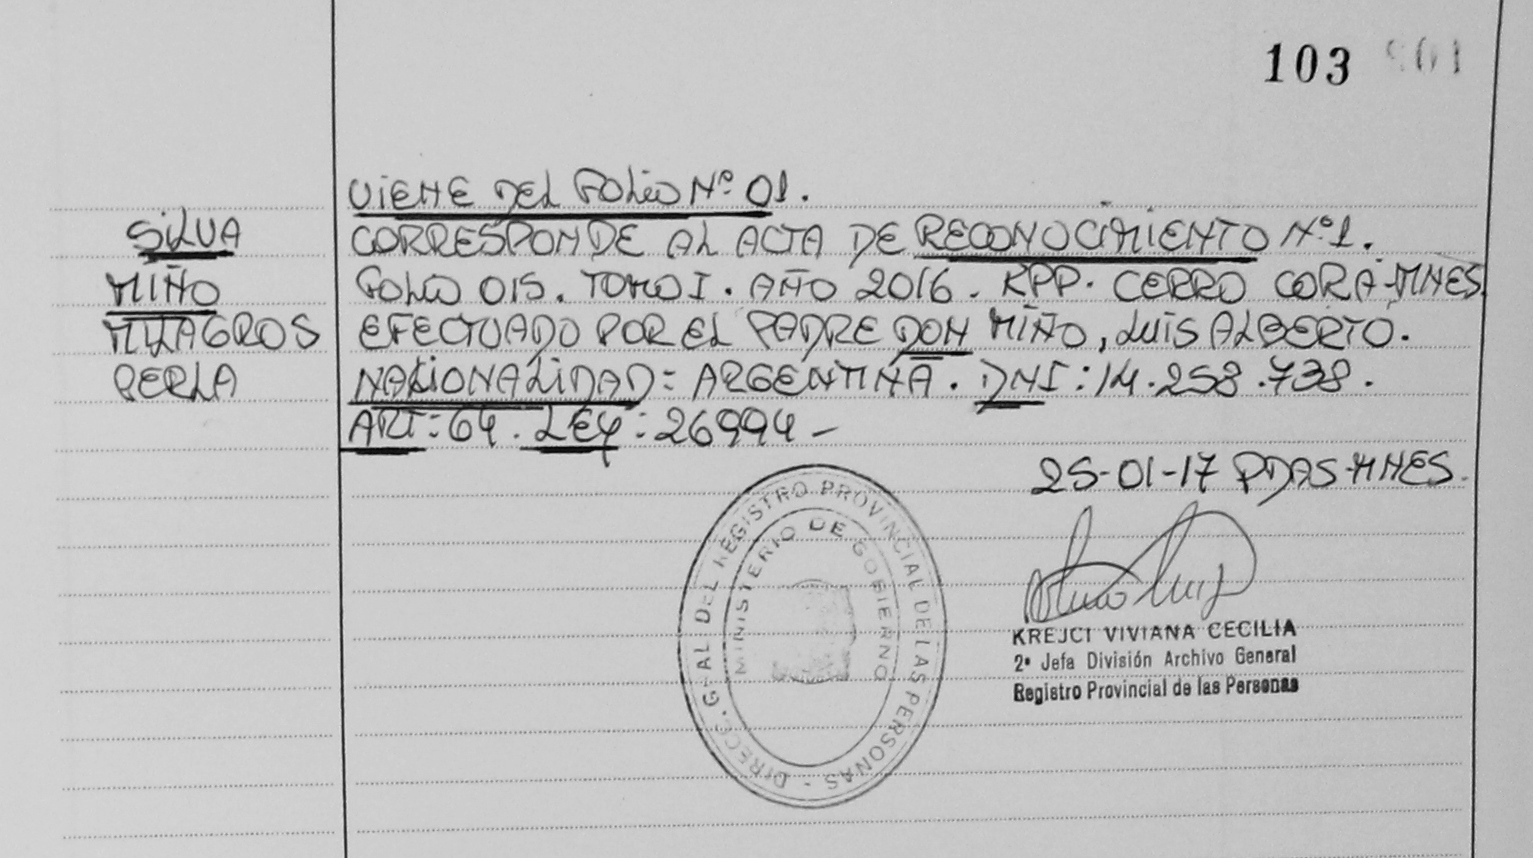 103 801
VIENE DEL FOLIO Nº 01.
SILVA
CORRESPONDE AL ACTA DE RECONOCIMIENTO Nº1.
MIÑO
FOLIO 015. TOMO I. AÑO 2016. RPP. CERRO CORÁ-MNES
MILAGROS
EFECTUADO POR EL PADRE DON MIÑO, LUIS ALBERTO.
PERLA
NACIONALIDAD: ARGENTINA. DNI: 14.258.738.
ART: 64. LEY: 26994-
25-01-17 PDAS-MNES.
DIRECC. GRAL DEL REGISTRO PROVINCIAL DE LAS PERSONAS -
MINISTERIO DE GOBIERNO
KREJCI VIVIANA CECILIA
2ª Jefa División Archivo General
Registro Provincial de las Personas